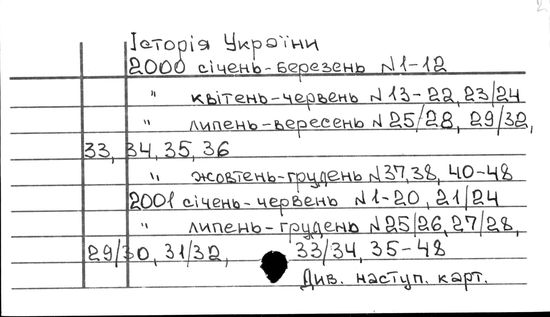 Історія України
2000 січень-березень N1-12
" квітень-червень N13-22, 23/24
" липень-вересень N25/28, 29/32,
33, 34, 35, 36
" жовтень-грудень N37,38, 40-48
2001 січень-червень N1-20, 21/24
" липень-грудень N25/26, 27/28,
29/30, 31/32, 33/34, 35-48
Див. наступ. карт.